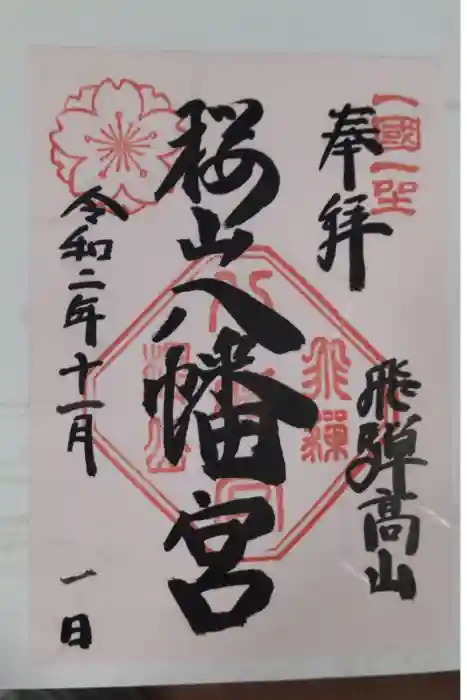 奉拝
一國一社
飛騨高山
桜山八幡宮
令和二年十一月
一日